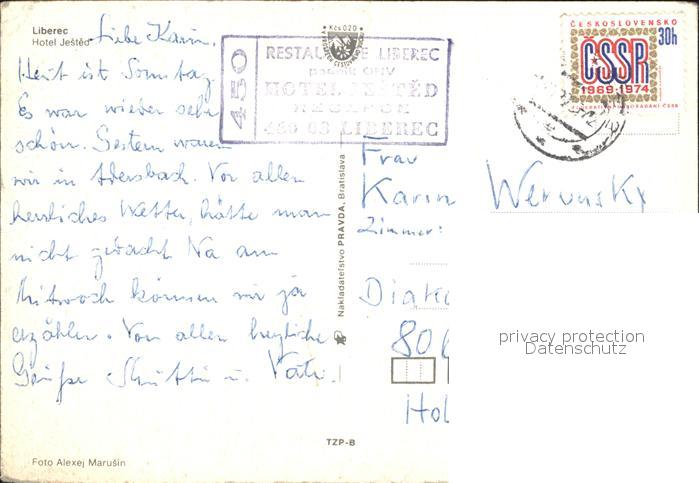 Liberec
Hotel Ještěd
Liebe Karin,
Heut ist Sonntag
Es war wieder sehr
schön. Gestern waren
wir in Adersbach. Vor allen
herrliches Wetter, hätte man
nicht gedacht Na am
Mittwoch können wir ja
erzählen. Von allen herzliche
Grüße Mutti u. Vati.
Kčs 0,20
450
RESTAURACE LIBEREC
podnik ONV
HOTEL JEŠTĚD
460 03 LIBEREC
ČESKOSLOVENSKO
30h
ČSSR
1969-1974
Nakladatelstvo PRAVDA, Bratislava
Frau
Karin Werunsky
Zimmer:
Diak
80
Hol
privacy protection
Datenschutz
TZP-B
Foto Alexej Marušin